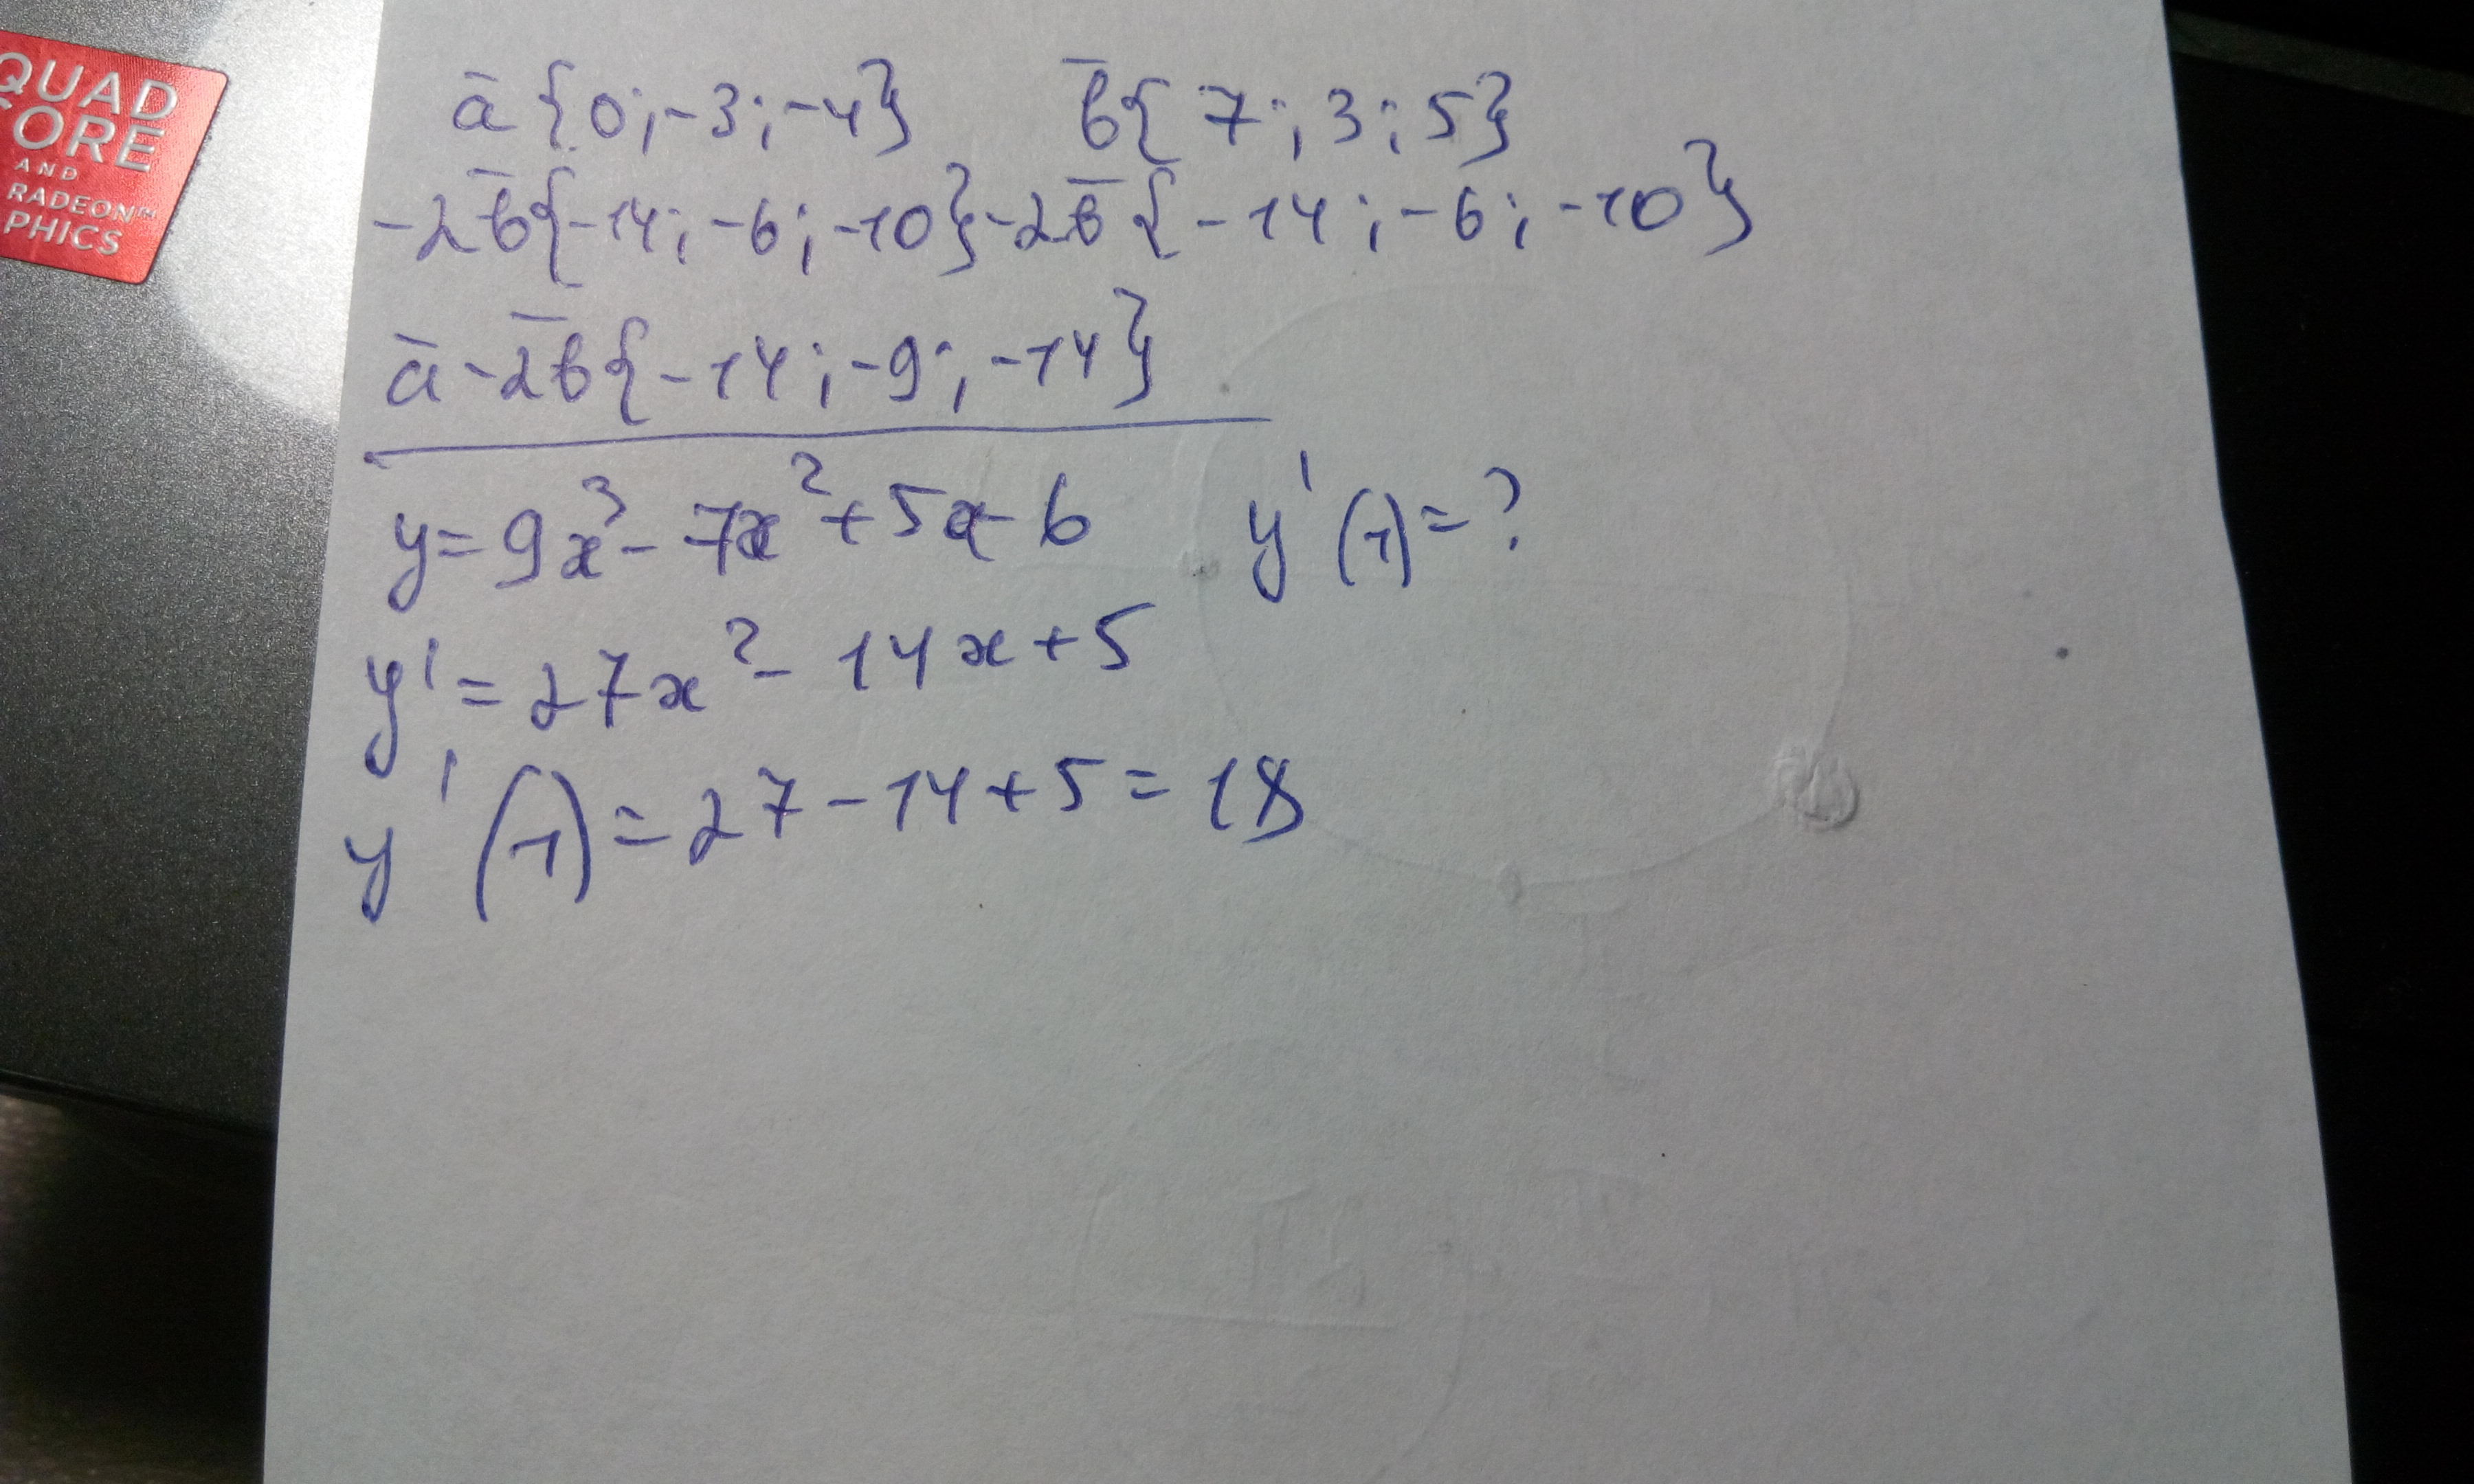 QUAD
CORE
AND
RADEON™
PHICS
ā {0; -3; -4}   b̄ {7; 3; 5}
-2b̄ {-14; -6; -10} -2b̄ {-14; -6; -10}
ā - 2b̄ {-14; -9; -14}
y = 9x³ - 7x² + 5x - 6   y'(1) = ?
y' = 27x² - 14x + 5
y'(1) = 27 - 14 + 5 = 18